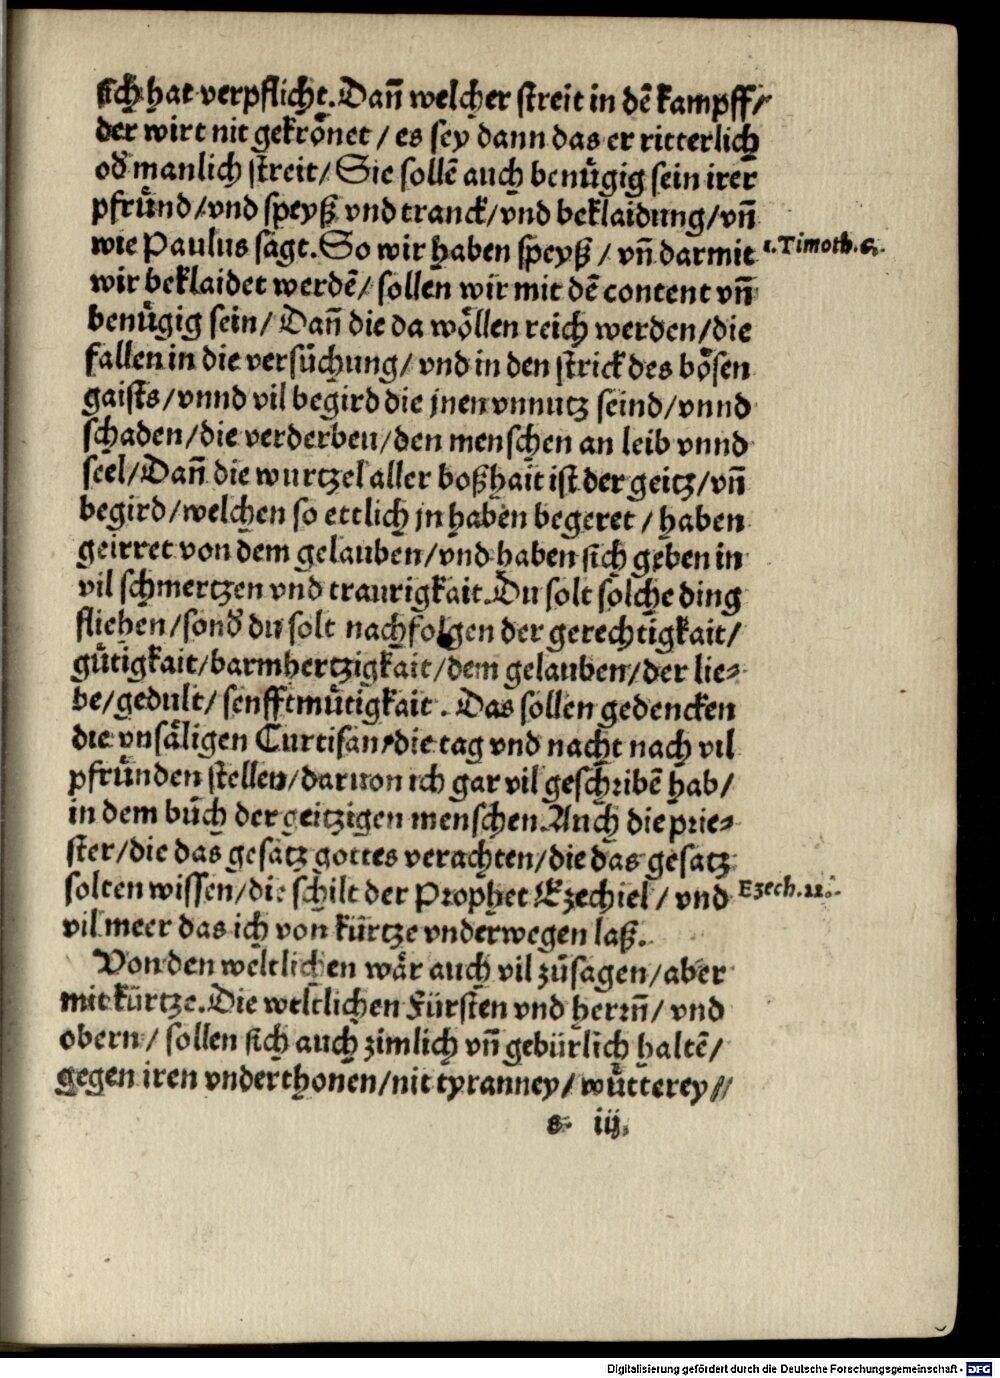 sich hat verpflicht. Dañ welcher streit in dē kampff /
der wirt nit gekroͤnet / es sey dann das er ritterlich
od̄ manlich streit / Sie sollē auch benuͤgig sein irer
pfruͤnd / vnd speyß vnd tranck / vnd beklaidung / vñ
wie Paulus sagt. So wir haben speyß / vñ darmit
1. Timoth. 6.
wir beklaidet werdē / sollen wir mit dē content vñ
benuͤgig sein / Dañ die da woͤllen reich werden / die
fallen in die versuͤchung / vnd in den strick des boͤsen
gaists / vnnd vil begird die jnen vnnutz seind / vnnd
schaden / die verderben / den menschen an leib vnnd
seel / Dañ die wurtzel aller boßhait ist der geitz / vñ
begird / welchen so ettlich jn haben begeret / haben
geirret von dem gelauben / vnd haben sich geben in
vil schmertzen vnd traurigkait. Du solt solche ding
fliehen / sond̄ du solt nachfolgen der gerechtigkait /
guͤtigkait / barmhertzigkait / dem gelauben / der lie⸗
be / gedult / senfftmuͤtigkait. Das sollen gedencken
die vnsaͤligen Curtisan / die tag vnd nacht nach vil
pfruͤnden stellen / daruon ich gar vil geschribē hab /
in dem buͤch der geitzigen menschen. Auch die prie⸗
ster / die das gesatz gottes verachten / die das gesatz
solten wissen / die schilt der Prophet Ezechiel / vnd
Ezech. 22.
vil meer das ich von kürtze vnderwegen laß.
Von den weltlichen waͤr auch vil zuͤsagen / aber
mit kürtze. Die weltlichen Fürsten vnd herrñ / vnd
obern / sollen sich auch zimlich vñ gebürlich haltē /
gegen iren vnderthonen / nit tyranney / wuͤtterey //
e iij.
Digitalisierung gefördert durch die Deutsche Forschungsgemeinschaft - DFG